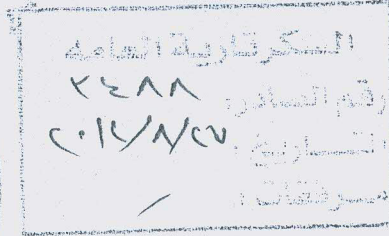 السكرتارية العامه
رقم الصادر: ٢٤٨٨
التاريخ: ٢٠١٢/٨/٢٧
مرفقات: /